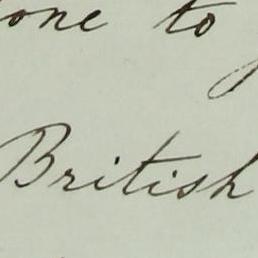 one to
British